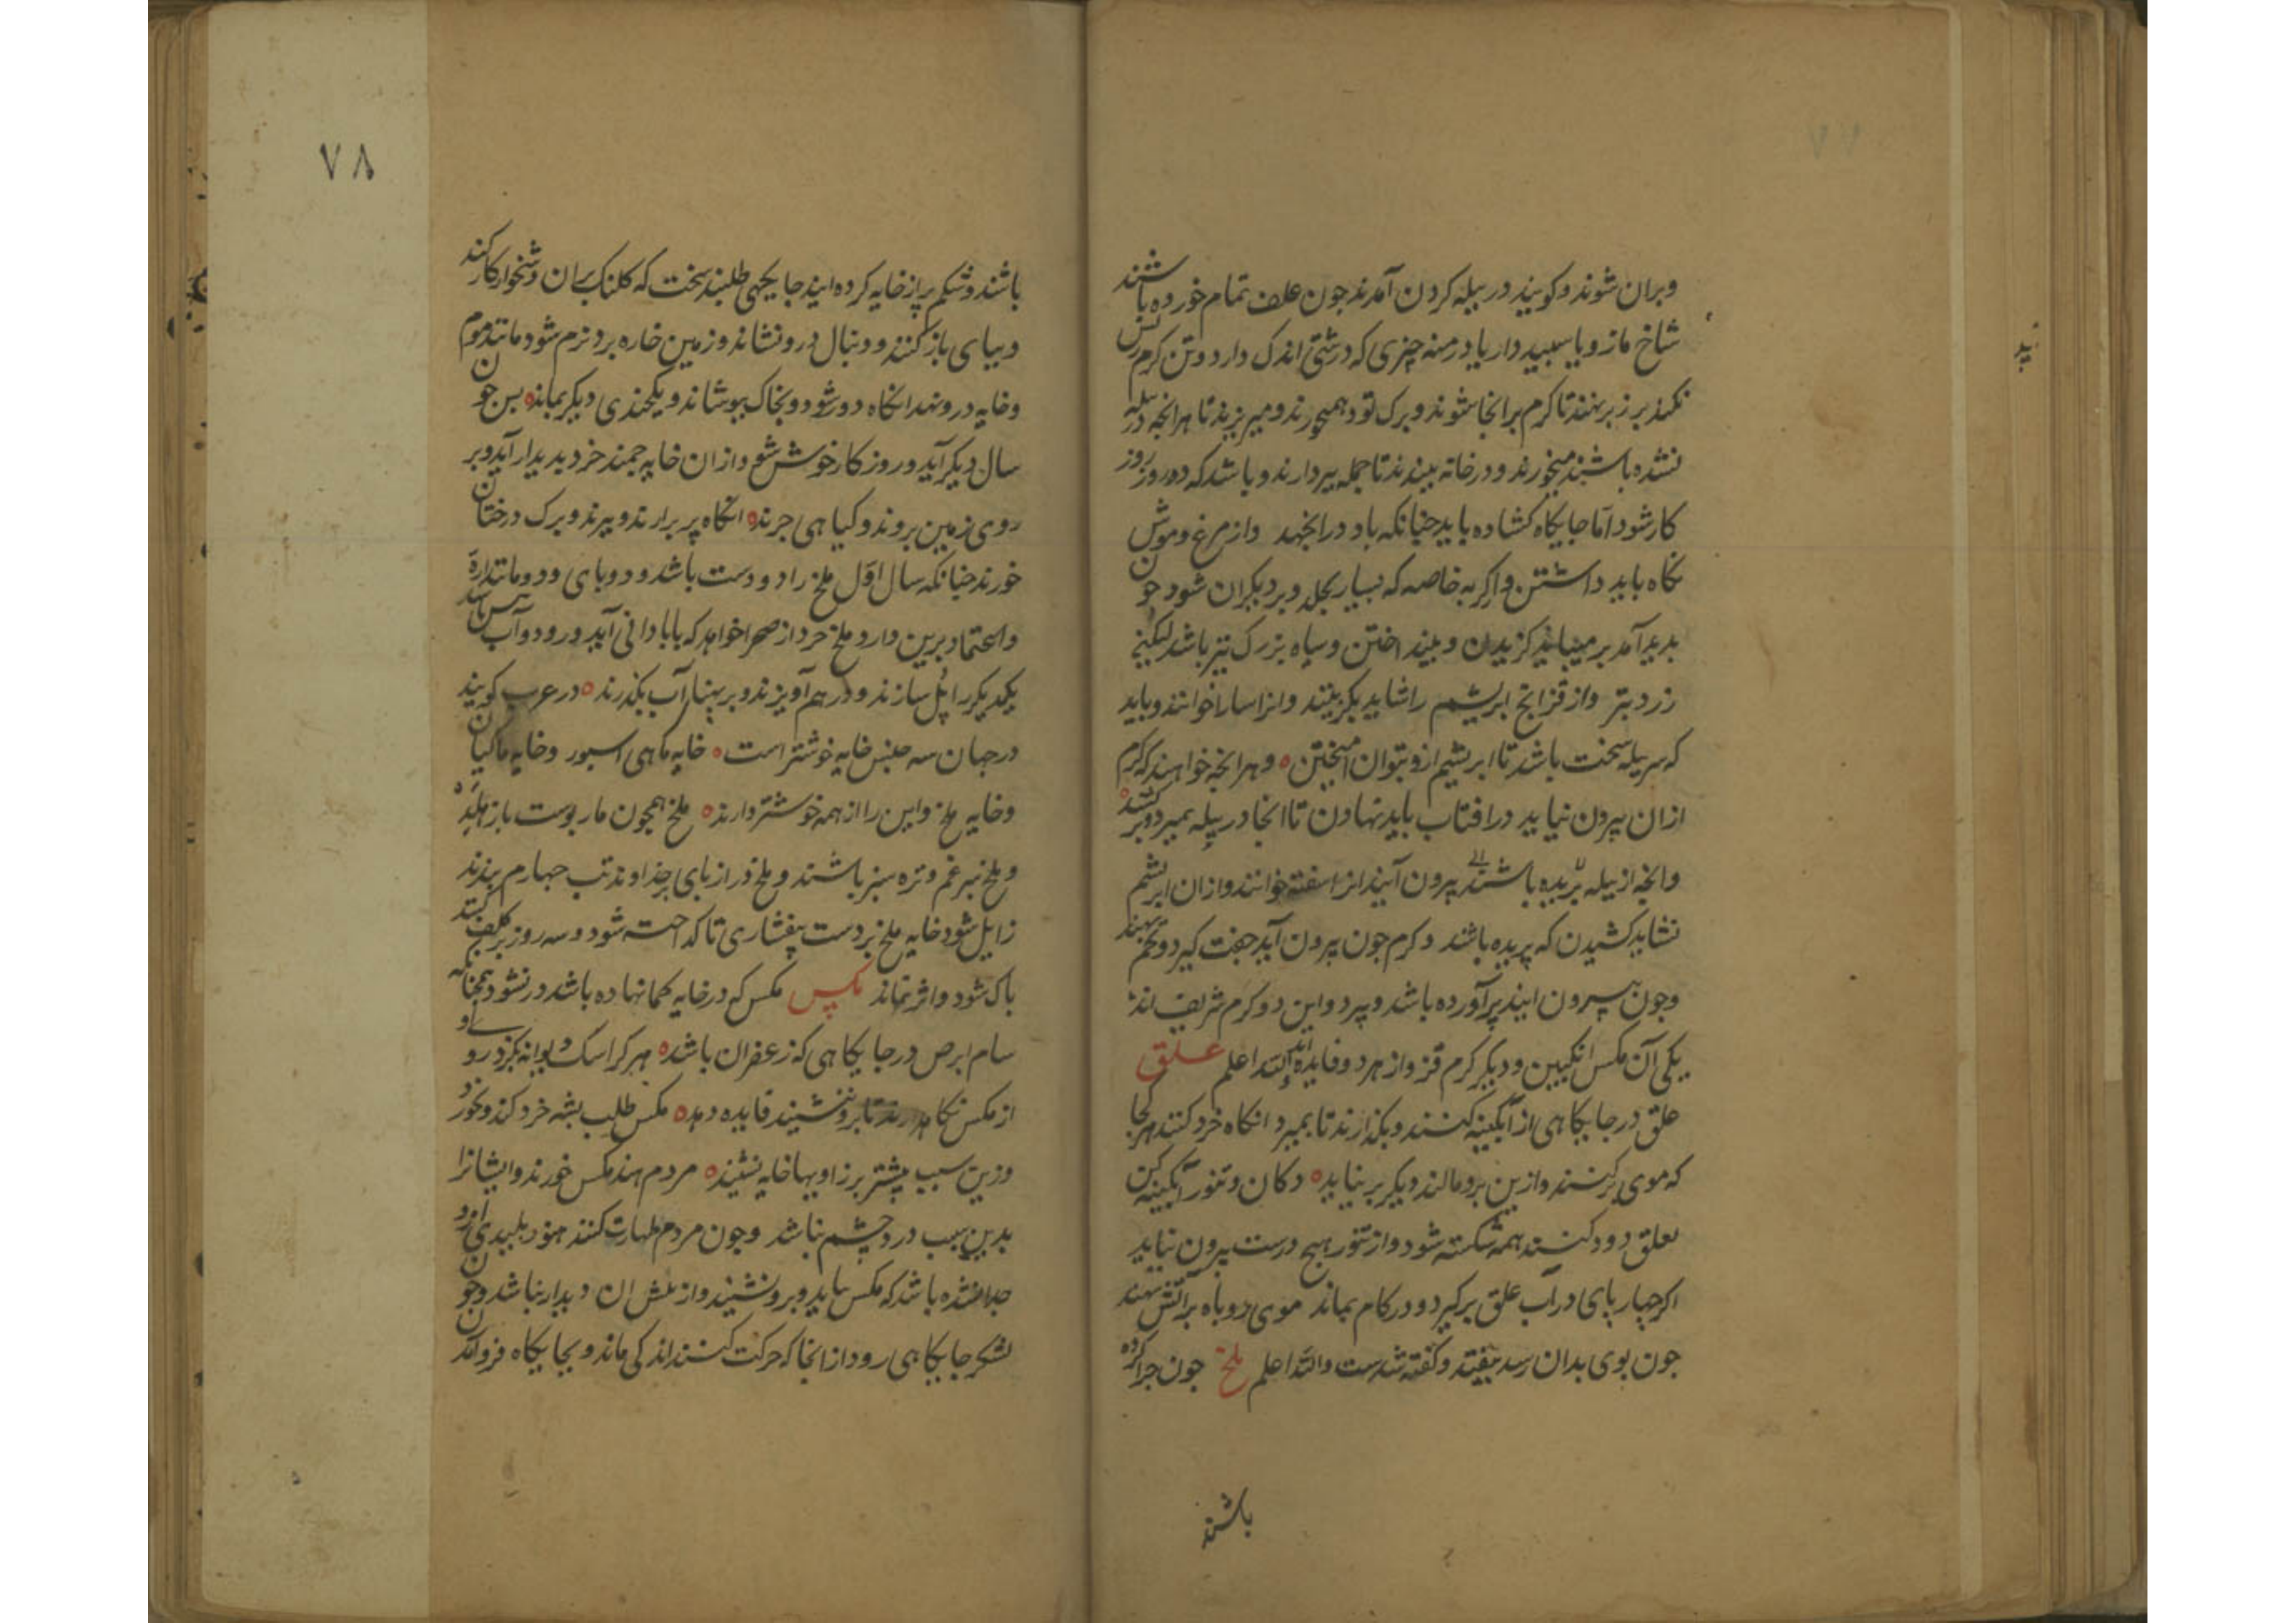 وبران شوند و کویند در بیله کردن آمدند جون علف تمام خورده باشند
شاخ مازو یا سبیددار یا درمنه چیزی که درشتی اندک دارد و تن کرم ریش
نکند بر زبر نهند تا کرم برانجا شوند و برک تود همیخورند و میریزند تا هرانجه در بیله
نشده باشند میخورند و در خانه ببندند تا جمله ببردارند و باشد که دو روز روز
کار شود اما جایکاه کشاده باید جنانکه باد درانجهد واز مرغ و موش
نکاه باید داشتن و از کربه خاصه که بسیار بجلد و بر دیکران شود جون
بدید آمد برمیباید کزیدن و بینداختن و سیاه بزرک تیز باشد لیکن
زرد بتر واز قز انج ابریشم را شاید بکزینند وانرا سارا خوانند و باید
که سر بیله سخت باشد تا ابریشم ازو بتوان امیختن ه و هرانجه خواهند که کرم
ازان بیرون نیاید در افتاب باید نهادن تا انجا در پیله بمیرد و بر کشند ه
وانجه از بیله بریده باشند بیرون آیند انرا سفته خوانند وازان ابریشم
نشاید کشیدن که پریده باشد و کرم جون بیرون آید جفت کیرد و تخم بنهد
وجون بیرون ایند پر آورده باشد و ببرد واین دو کرم شریف اند
یکی آن مکس انکبین و دیکر کرم قز واز هر دو فایده است والله اعلم علق
علق در جایکاهی از آبکینه کنند و بکذارند تا بمیرد انکاه خرد کنند هر کجا
که موی برکنند وازین برو مالند دیکر بر نیاید ه دکان و تنور آبکینه کن
بعلق دود کنند همه شکسته شود واز تنور هیج درست بیرون نیاید
اکر چهار پای در آب علق برکیرد و در کام بماند موی روباه بر آتش نهند
جون بوی بدان رسد بیفتد و کفته شدست والله اعلم ملخ جون جرا کرده
باشند
۷۸
باشند و شکم پر از خایه کرده ایند جایکهی طلبند سخت که کلنک بران دشخوار کار کند
و بپای باز کنند و دنبال درو نشاند و زمین خاره برو نرم شود مانند موم
و خایه درو نهد انکاه دور شود و بخاک ببوشاند و یکجندی دیکر بماند ه بس جون
سال دیکر آید و روزکار خوش شود ازان خایه جمند خرد بدیدار آید و بر
روی زمین بروند و کیاهی جرند ه انکاه پر برارند و ببرند و برک درختان
خورند جنانکه سال اول ملخ را دو دست باشد و دو بای
واعتماد برین دارد ملخ خرد از صحرا خواهد که بآبادانی آید و رود و آب
یکدیکر را پل سازند و در هم آویزند و بر پهنا آب بکذرند ه در عرب کویند
در جهان سه جنس خایه خوشتر است ه خایه ماهی اسبور و خایه ماکیان
و خایه ملخ واین را از همه خوشتر دارند ه ملخ همجون مار بوست باز هلد ه
و ملخ بر غم و تره سبز باشند و ملخ دراز بای بر خداوند تب جهارم بندند
زایل شود خایه ملخ بر دست بیفشاری تا کداخته شود و سه روز بر کلف کنند
باک شود و اثر نماند مکس مکس که در خایه کمانها ده باشد در نشود همجنانکه
سام ابرص در جایکاهی که زعفران باشد ه هر کرا سک دیوانه بکزد روی او
از مکس نکاه دارند تا برو ننشیند فایده دهد ه مکس طلب بشه خرد کند و بخورد
وزین سبب بیشتر بر زاویها خایه نشیند ه مردم هند مکس خورند وایشانرا
بدین سبب درد چشم نباشد و جون مردم طهارت کنند هنوز بلیدی ازو
جدا نشده باشد که مکس بیاید و برو نشیند و از ان دیدار نباشد وجون
لشکر جایکاهی رود از انجا که حرکت کنند اندکی ماند و بجایکاه فرو آید